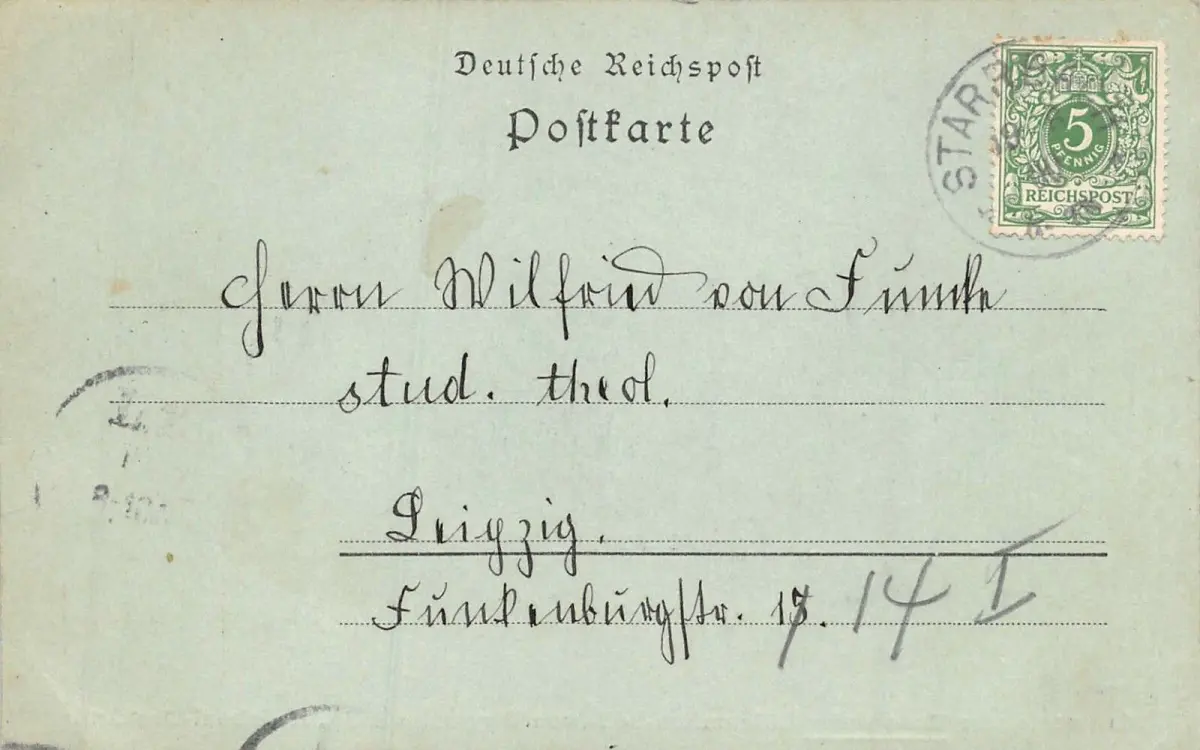 Deutsche Reichspost
Postkarte
5
PFENNIG
REICHSPOST
Herrn Wilfried von Funcke
stud. theol.
Leipzig.
Funkenburgstr. 17. 14 I